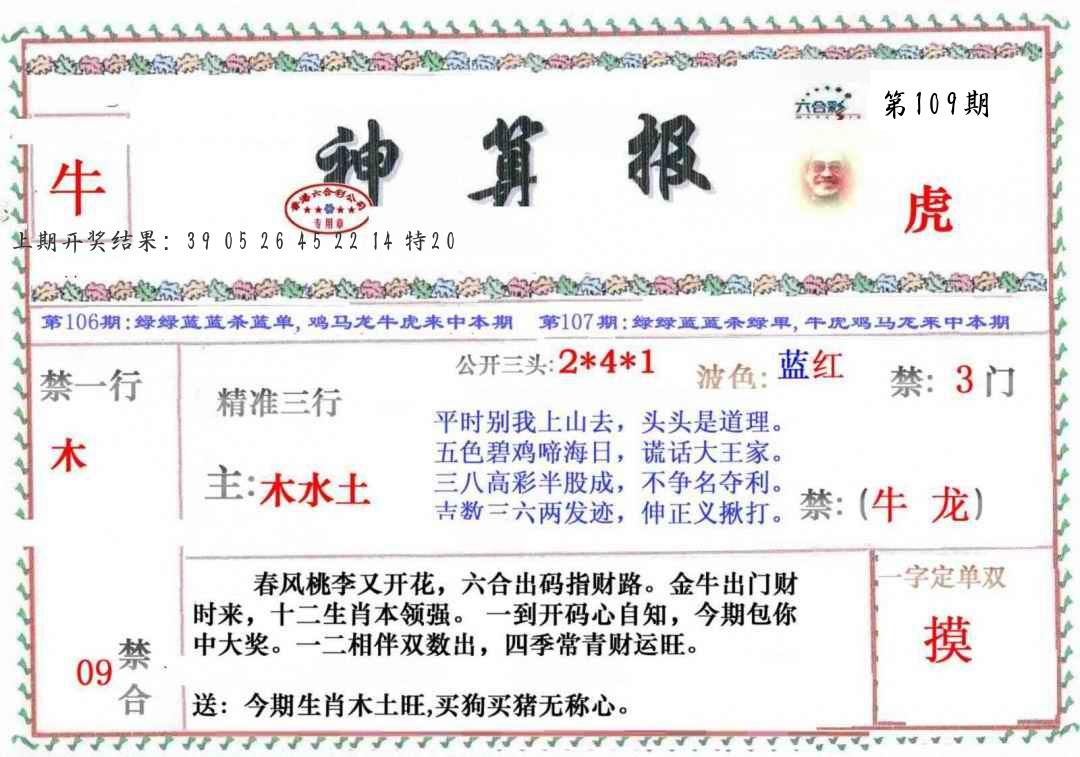 六合彩
第109期
神算报
牛
香港六合彩公司
专用章
虎
上期开奖结果：39 05 26 45 22 14 特20
第106期:绿绿蓝蓝杀蓝单,鸡马龙牛虎来中本期 第107期:绿绿蓝蓝杀绿单,牛虎鸡马龙来中本期
禁一行
木
精准三行
主:木水土
公开三头:2*4*1
波色:蓝红
禁: 3门
平时别我上山去，头头是道理。
五色碧鸡啼海日，谎话大王家。
三八高彩半股成，不争名夺利。
吉数三六两发迹，伸正义揪打。
禁:(牛 龙)
春风桃李又开花，六合出码指财路。金牛出门财
时来，十二生肖本领强。 一到开码心自知，今期包你
中大奖。一二相伴双数出，四季常青财运旺。
送：今期生肖木土旺,买狗买猪无称心。
09
禁合
一字定单双
摸